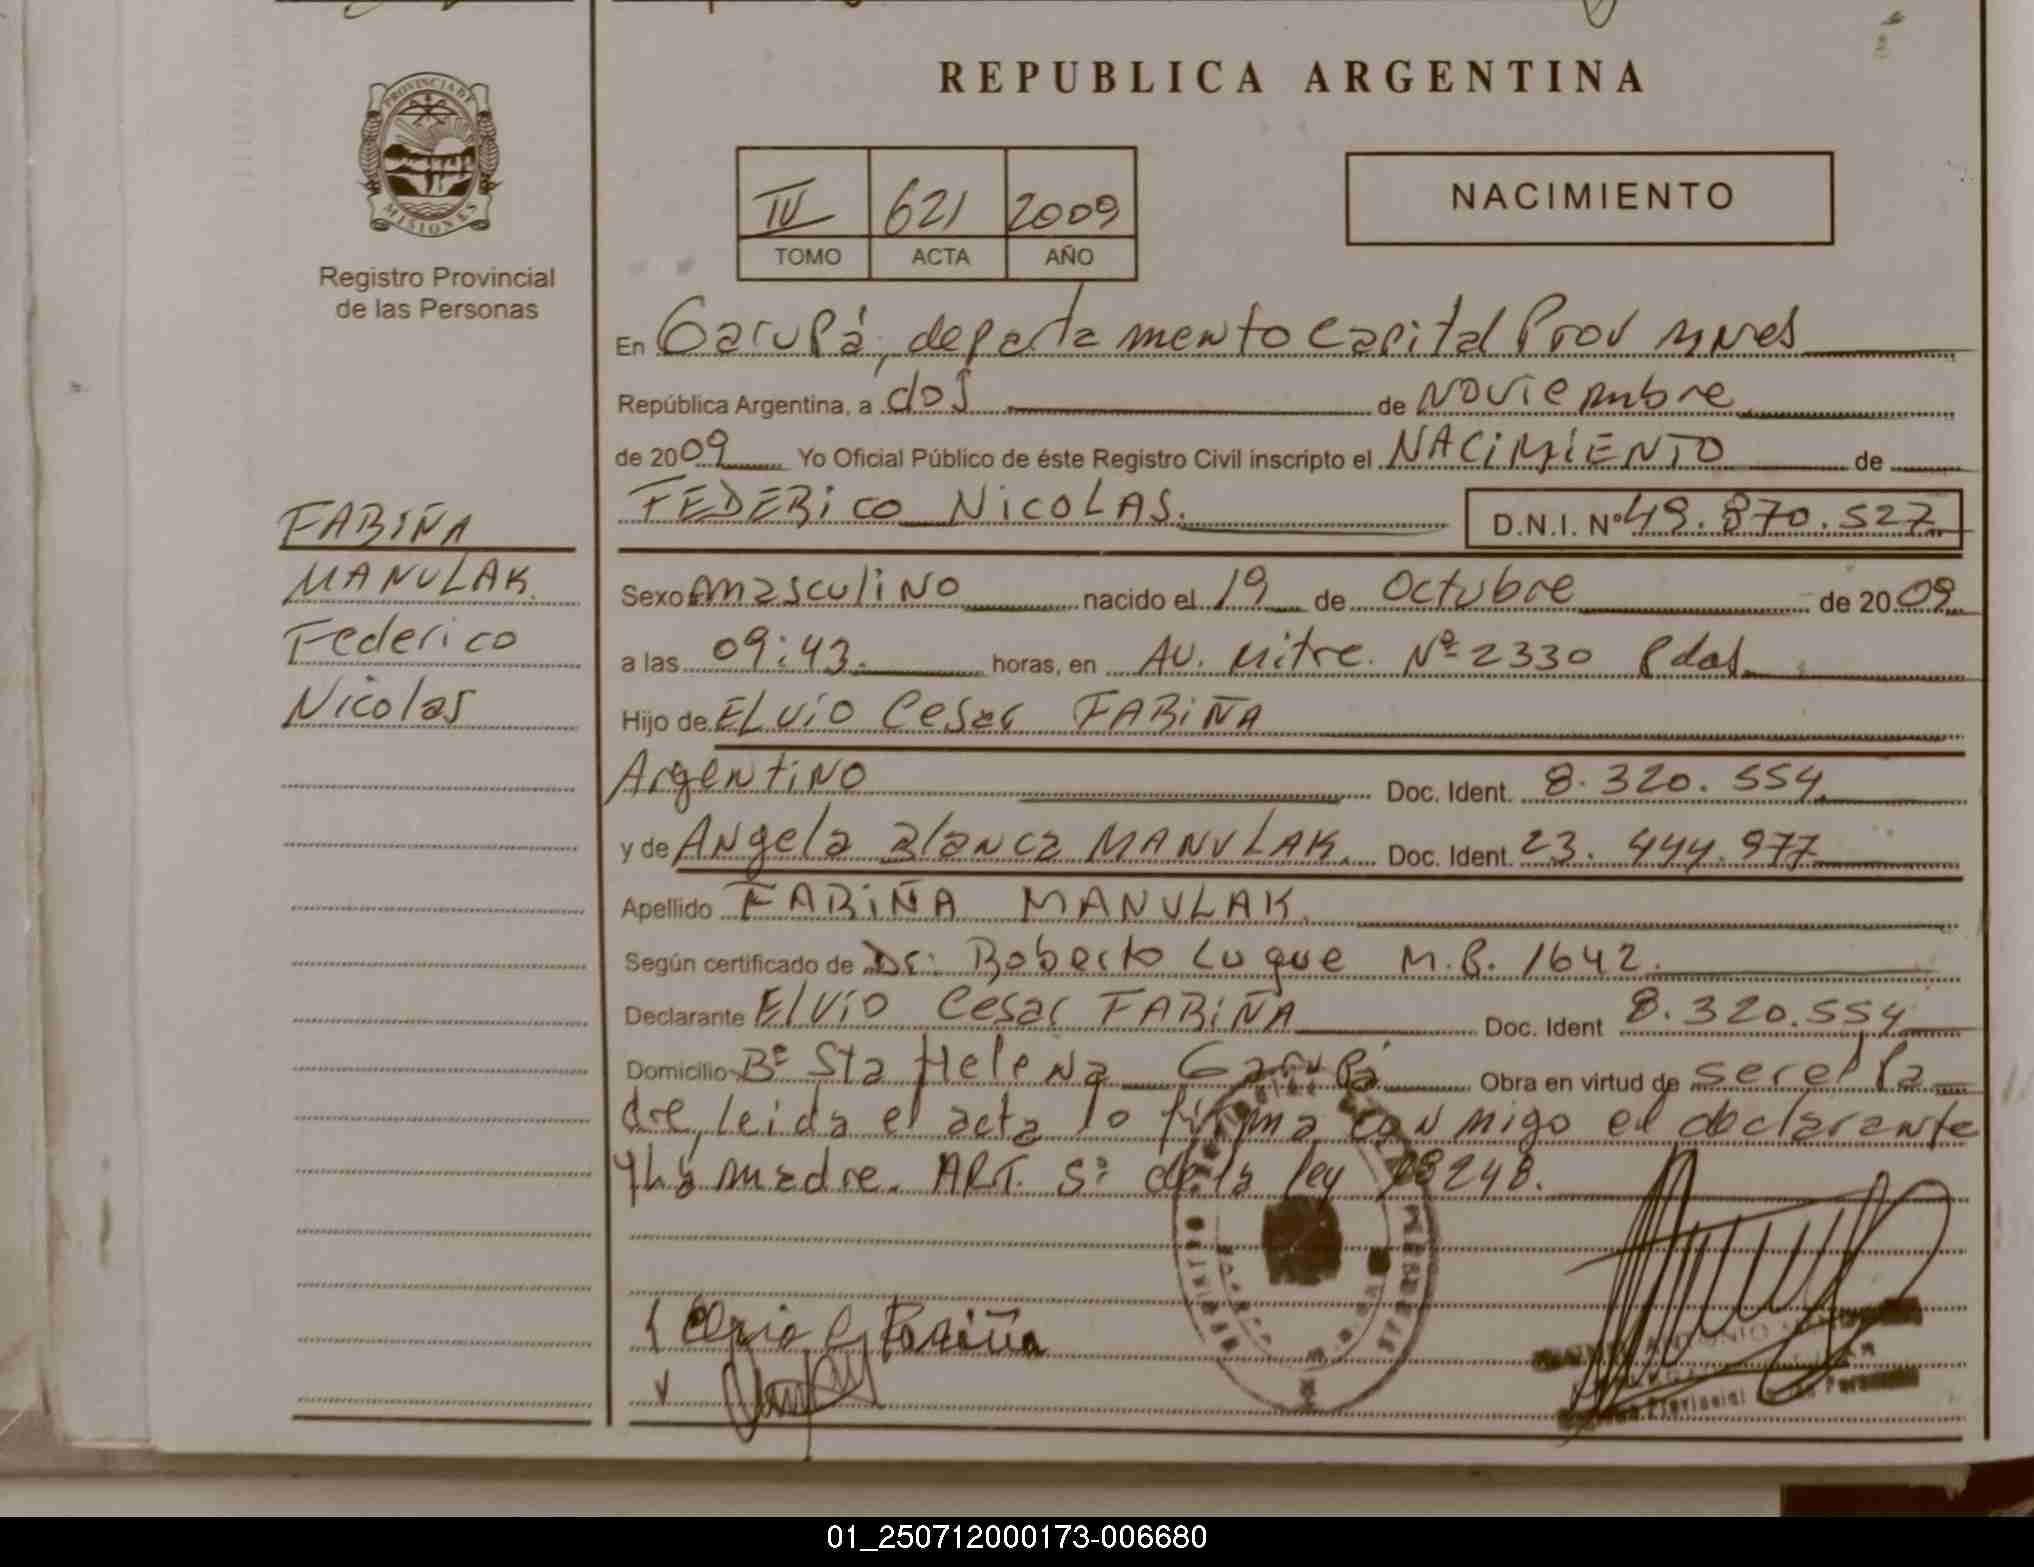 REPUBLICA ARGENTINA
PROVINCIA DE
MISIONES
Registro Provincial
de las Personas
IV 621 2009
TOMO ACTA AÑO
NACIMIENTO
En Garupá, departamento Capital Prov Mnes
República Argentina, a dos de Noviembre
de 2009 Yo Oficial Público de éste Registro Civil inscripto el NACIMIENTO de
FEDERICO NICOLAS. D.N.I. Nº 49.870.527
FARIÑA
MANULAK.
Federico
Nicolas
Sexo masculino nacido el 19 de Octubre de 2009
a las 09:43. horas, en Av. Mitre. Nº 2330 Pdas.
Hijo de ELVIO Cesar FARIÑA
Argentino Doc. Ident. 8.320.554
y de Angela Blanca MANULAK. Doc. Ident. 23.444.977
Apellido FARIÑA MANULAK.
Según certificado de Dr. Roberto Luque M.P. 1642.
Declarante Elvio Cesar FARIÑA Doc. Ident 8.320.554
Domicilio Bº Sta Helena Garupá Obra en virtud de ser el Pa
dre, leida el acta lo firma conmigo el declarante
y la madre. ART. 5º de la ley 18248.
Fariña
Provincial
01_250712000173-006680